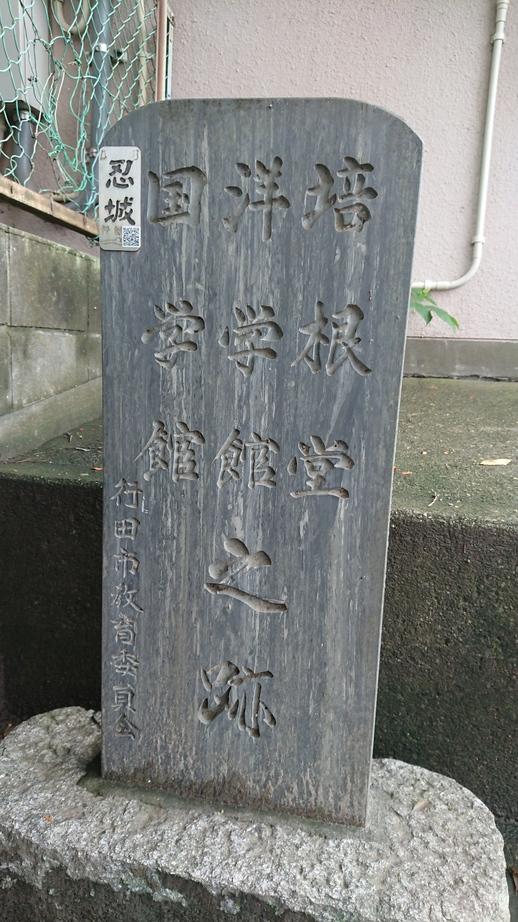 培根堂
洋学館之跡
国学館
行田市教育委員会
忍城